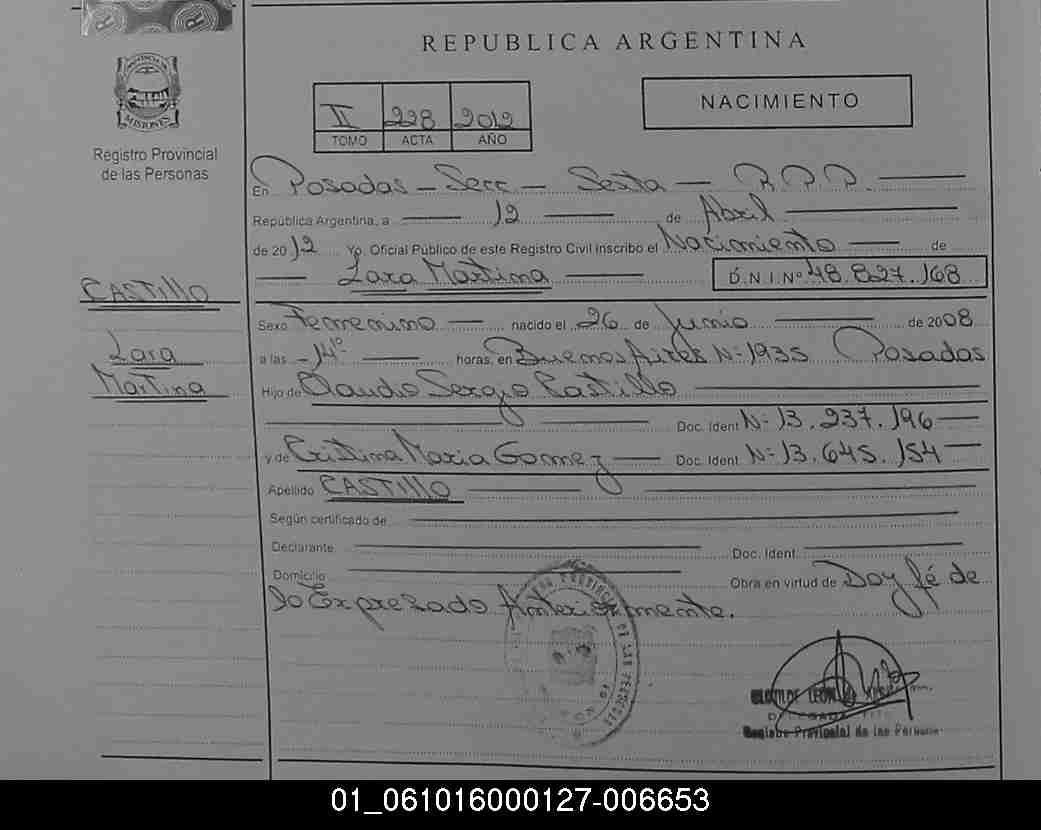 PROVINCIA DE
MISIONES
Registro Provincial
de las Personas
REPUBLICA ARGENTINA
II 228 2012
TOMO ACTA AÑO
NACIMIENTO
En Posadas - Secc - Sexta - R.P.P.
República Argentina, a 12 de Abril
de 2012 Yo, Oficial Público de este Registro Civil inscribo el Nacimiento de
Lara Martina D.N.I.Nº 48.827.168
CASTILLO
Lara
Martina
Sexo Femenino nacido el 26 de Junio de 2008
a las 14º horas, en Buenos Aires Nº 1935 Posadas
Hijo de Claudio Sergio Castillo
Doc. Ident Nº 13.237.196
y de Cristina Maria Gomez Doc. Ident Nº 13.645.154
Apellido CASTILLO
Según certificado de
Declarante Doc. Ident.
Domicilio Obra en virtud de Doy fé de
lo Expresado Anteriormente.
DELEGADA
Registro Provincial de las Personas
01_061016000127-006653